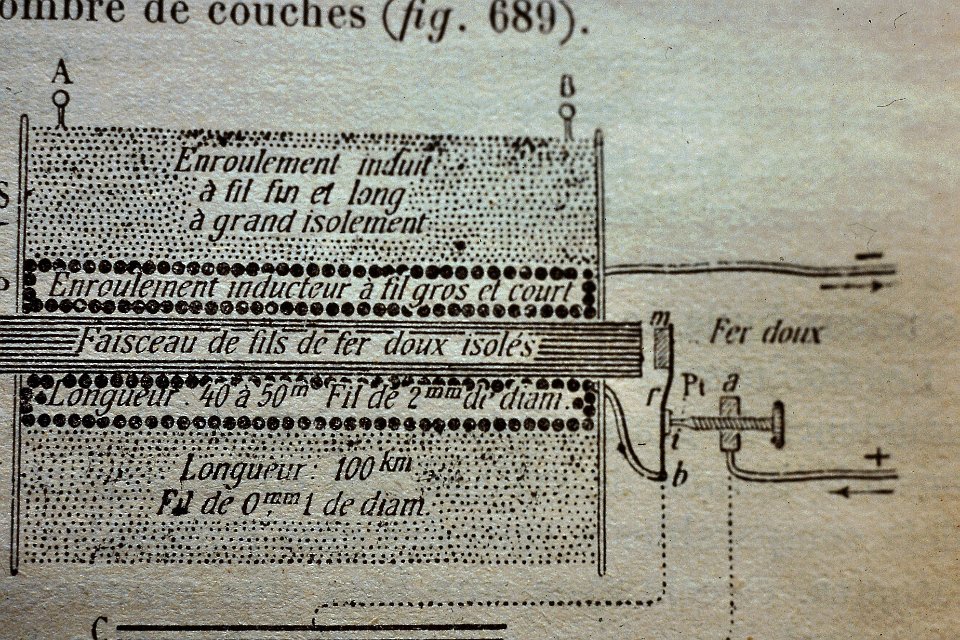 ombre de couches (fig. 689).
A
B
S
Enroulement induit
à fil fin et long
à grand isolement
−
Enroulement inducteur à fil gros et court
m
Faisceau de fils de fer doux isolés
Fer doux
r
Pt
a
Longueur : 40 à 50m Fil de 2mm de diam.
i
+
b
Longueur : 100 km
Fil de 0mm1 de diam.
C